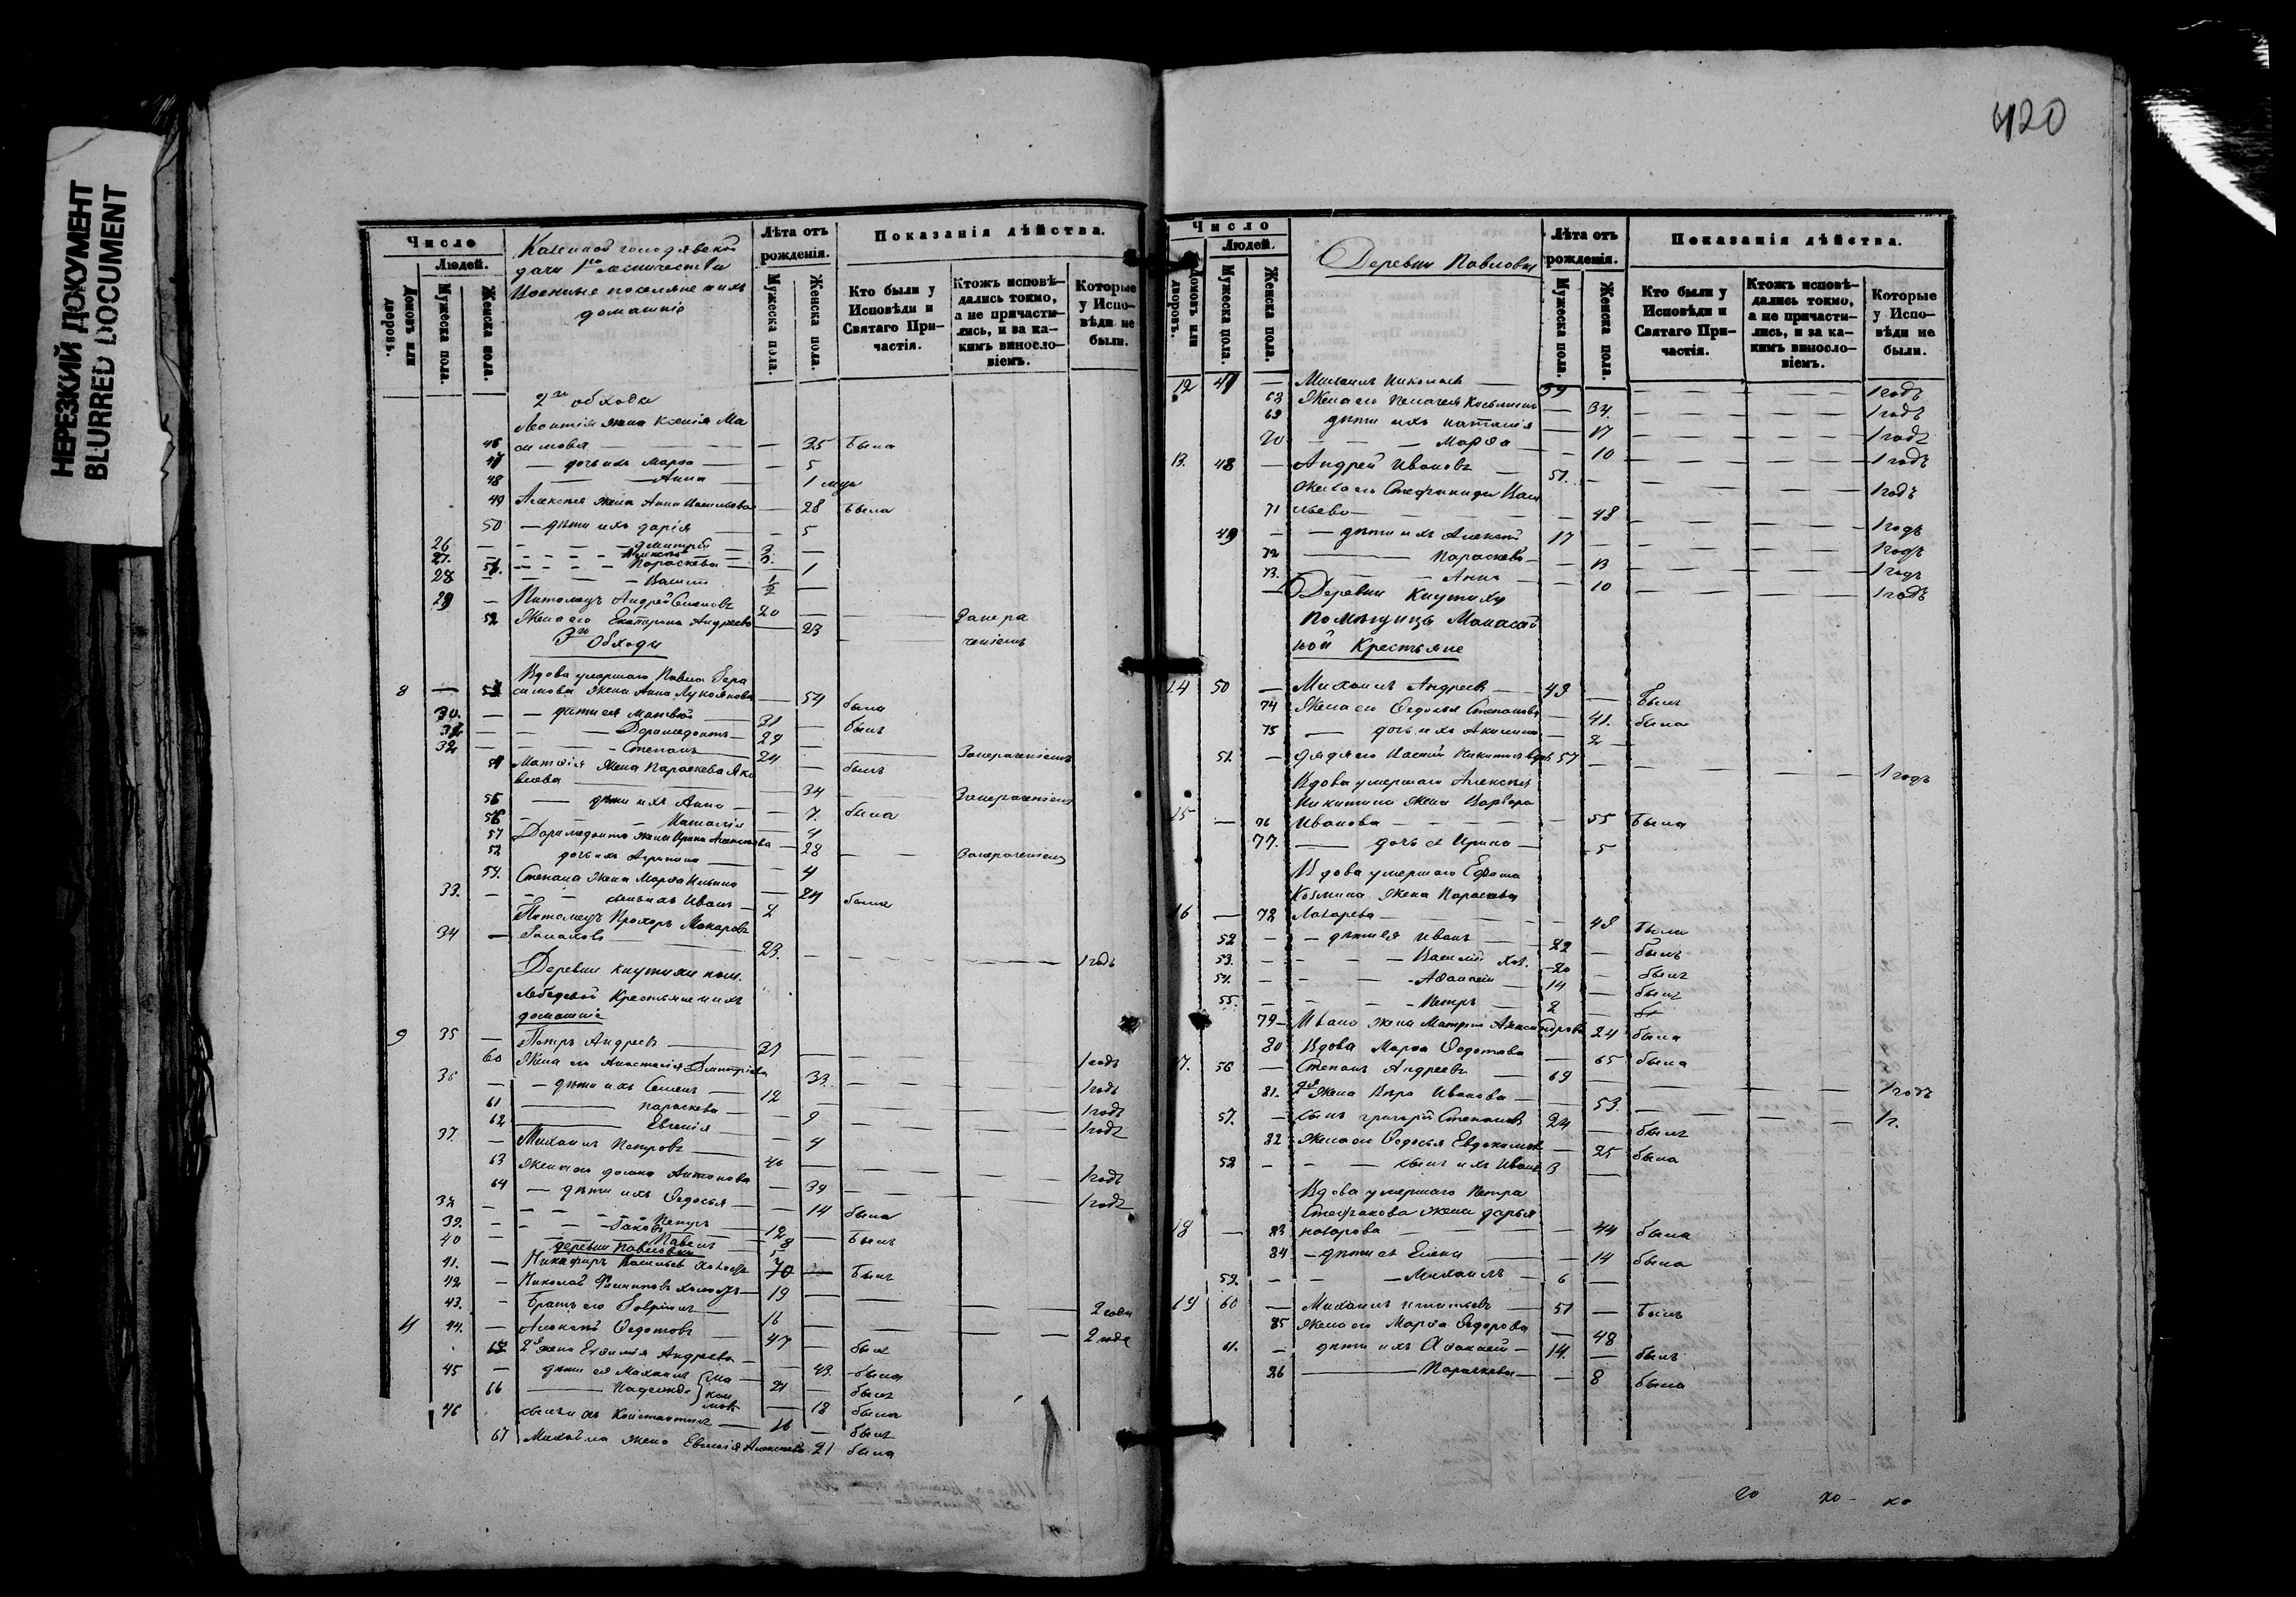 НЕРЕЗКИЙ ДОКУМЕНТ
BLURRED DOCUMENT
420
Число
Людей.
Домовъ или дворовъ.
Мужеска пола.
Женска пола.
Казенной
дачи 1го лесничества
Военные поселяне и ихъ
домашніе
Лѣта отъ рожденія.
Мужеска пола.
Женска пола.
Показанія дѣйства.
Кто были у Исповѣди и Святаго Причастія.
Ктожъ исповѣдались токмо, а не причастились, и за какимъ винословіемъ.
Которые у Исповѣди не были.
2го обхода
Леонтія жена Ксенія Ма
46 симова — 35 Была
47 — дочь ихъ Марѳа — 5
48 — Анна — 1 мца
49 Алексѣя жена Анна Васильева — 28 Была
50 — дѣти ихъ Дарія — 5
26 — Дмитрій 3 —
27. — Алексѣй 2. —
51. — Параскева — 1
28 — Василій 1/2 —
29 — Питомецъ Андрей Семеновъ 20 —
52 Жена его Екатерина Андреева — 23
3го Обхода
Вдова умершаго Павла Гера
8 — 53 симова жена Анна Лукоянова — 54 была
30. — дѣти ея Матвѣй 31 — былъ
31 — Доримедонтъ 29 —
32 — Степанъ 24 — былъ
54 Матвія жена Параскева Яко
влева — 34
55 — дѣти ихъ Анна — 7. была
56 — Наталія — 4
57 Доримедонта жена Ирина Алексѣева — 28
58 дочь ихъ Агрипина — 4
59. Степана жена Марѳа Ильина — 24 была
33. — сынъ ихъ Иванъ 2
Питомецъ Прохоръ Макаровъ
34 — 23. — 1 годъ
Деревни Кнутихи пом.
Лебедевой Крестьяне и ихъ
домашніе
9 35 — Петръ Андреевъ 31 — 1 годъ
60 Жена его Анастасія Димитріева — 33. 1 годъ
36 — дѣти ихъ Семенъ 12 — 1 годъ
61 — Параскева — 9 1 годъ
62 — Евгенія — 4
37. — Михаилъ Петровъ 46 — 1 годъ
63 Жена его Домна Антонова — 39 1 годъ
64 — дѣти ихъ Ѳедосья — 14 была
38 — Петръ 12 — Былъ
39. — Яковъ 8
40 — Павелъ 5
деревни Павловки
41. — Никифоръ Васильевъ 70 — Былъ
42 — Николай Филиповъ холостъ 19 — 2 года
43. — Братъ его Гавріилъ 16 — 2 года
11 44. — Алексѣй Ѳедотовъ 47 — былъ
65 2я жена Евѳимія Андреева — 43. была
45 — дѣти ея Михаилъ 21 — былъ
66 — 18 была
46 сынъ ихъ Константинъ 16 — былъ
67 Михаила жена Евгенія Алексѣева 21 была
Число
Людей.
Домовъ или дворовъ.
Мужеска пола.
Женска пола.
Деревни Павловки
Лѣта отъ рожденія.
Мужеска пола.
Женска пола.
Показанія дѣйства.
Кто были у Исповѣди и Святаго Причастія.
Ктожъ исповѣдались токмо, а не причастились, и за какимъ винословіемъ.
Которые у Исповѣди не были.
12 47 — Михаилъ Николаевъ 39 — 1 годъ
68 Жена его Пелагея Косьмина — 34. 1 годъ
69 дѣти ихъ Наталія — 17 1 годъ
70 — Марѳа — 10 1 годъ
13. 48 — Андрей Ивановъ 51. — 1 годъ
Жена его Стефанида Васи
71 льева — 48 1 годъ
49 — дѣти ихъ Алексѣй 17 — 1 годъ
72 — Параскева — 13 1 годъ
73. — Анна — 10 1 годъ
Деревни Кнутихи
помѣщицы
Крестьяне
14 50 — Михаилъ Андреевъ 43 — Былъ
74 Жена его Ѳедосья Степанова — 41. была
75 — дочь ихъ Акилина — 2
51. — дядя его Василій Никитинъ вдвъ 57 — 1 годъ
Вдова умершаго Алексѣя
Никитина жена Варвара
15 — 76 Иванова — 55 Была
77. — дочь ея Ирина — 5
Вдова умершаго Ефима
Козмина жена Параскева
16 — 78 Лазарева — 48 Была
52 — дѣти ея Иванъ 22 — былъ
53. — Василій хол. 20 — былъ
54. — Аѳанасій 14 — былъ
55. — Петръ 2
79 — Ивана жена Матрена Александрова 24 была
80 Вдова Марѳа Ѳедотова — 65 была
17. 56 — Степанъ Андреевъ 69 — 1 годъ
81. 2я жена Вѣра Иванова — 53. 1г.
57. — сынъ Григорій Степановъ 24 — былъ
82 Жена его Ѳедосья Евдокимова — 25 была
58 — сынъ ихъ Иванъ 3 —
Вдова умершаго Петра
Стефанова жена Дарья
18 — 83 — 44 была
84 — дѣти ея Елена — 14 была
59. — Михаилъ 6 —
19 60 — Михаилъ Игнатьевъ 51 — Былъ
85 Жена его Марѳа Ѳедорова — 48
61. — дѣти ихъ Аѳанасій 14. — былъ
86 — Параскева — 8 была